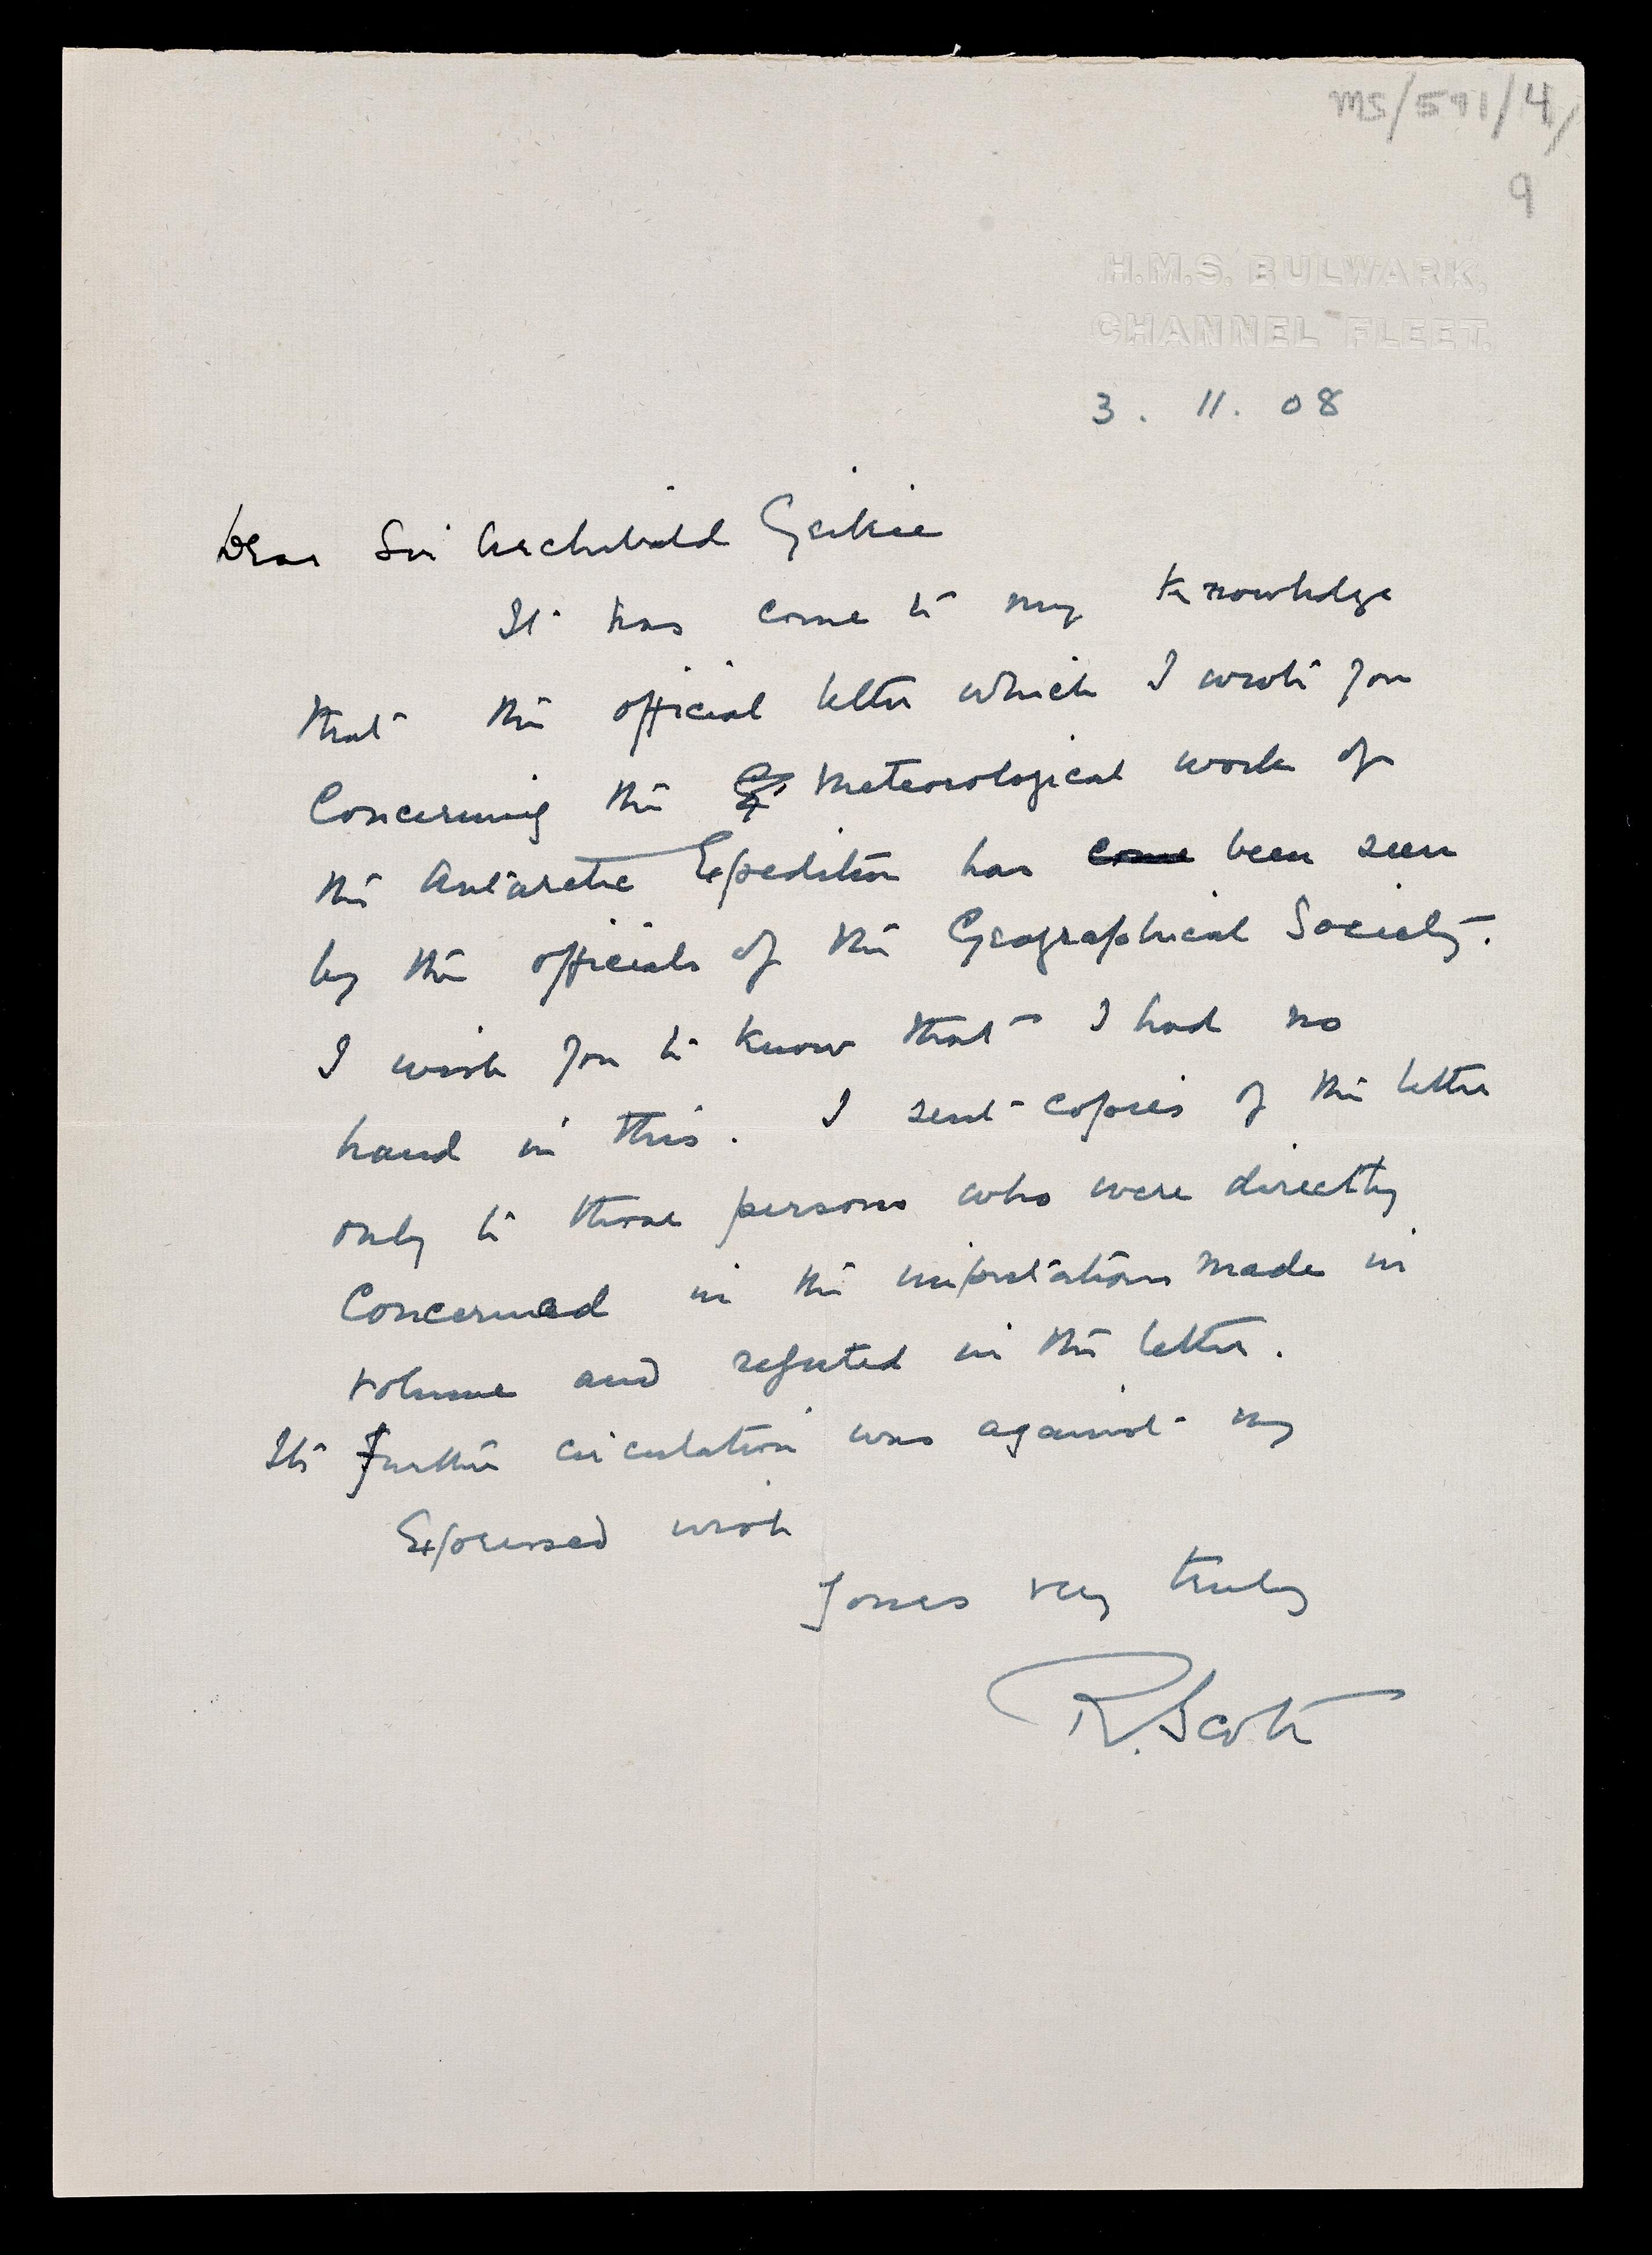 MS/591/4/
9
H.M.S. BULWARK,
CHANNEL FLEET.
3. 11. 08
Dear Sir Archibald Geikie
It has come to my knowledge
that the official letter which I wrote you
Concerning the Meteorological work of
the Antarctic Expedition has come been seen
by the officials of the Geographical Society.
I wish you to know that I had no
hand in this. I sent copies of the letter
only to those persons who were directly
Concerned in the imputations made in
volume and refuted in the letter.
Its further circulation was against my
Expressed wish
Yours very truly
R. Scott